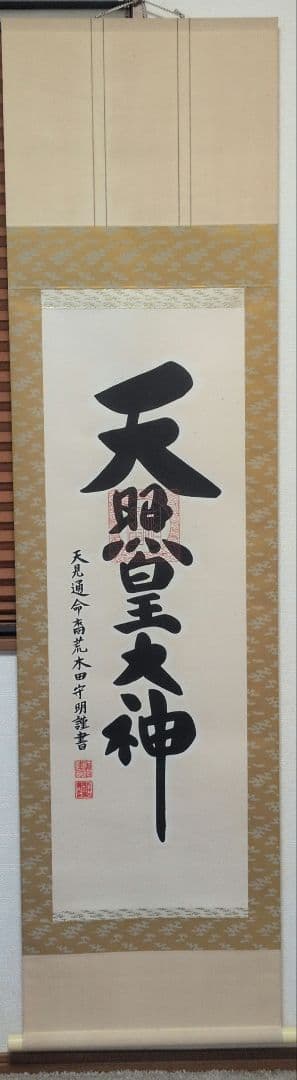 天照皇大神
天見通命裔荒木田守明謹書